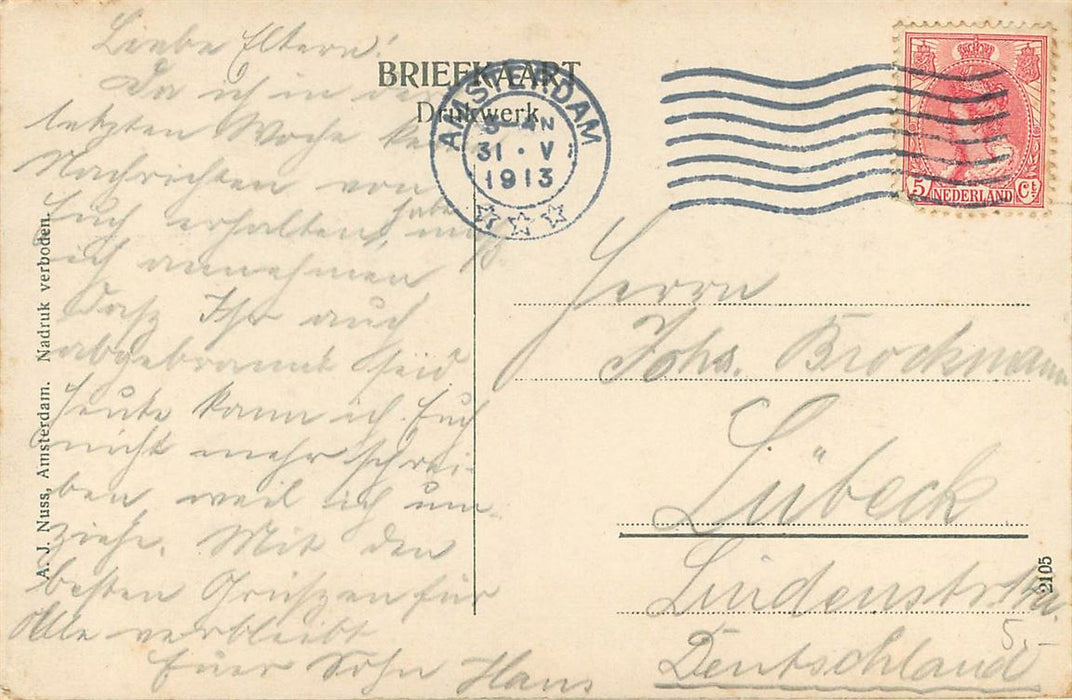 Liebe Eltern!
Da ich in der
letzten Woche keine
Nachrichten von
Euch erhalten habe, muß
ich annehmen
dasz Ihr auch
abgebrannt seid
Heute kann ich Euch
nicht mehr schrei-
ben weil ich um-
ziehe. Mit den
besten Grüszen für
Alle verbleibt
Euer Sohn Hans
A. J. Nuss, Amsterdam. Nadruk verboden.
BRIEFKAART
Drukwerk.
AMSTERDAM
31 · V
1913
5 NEDERLAND Ct
Herrn
Johs. Brockmann
Lübeck
Lindenstr.
Deutschland
2105
5,-